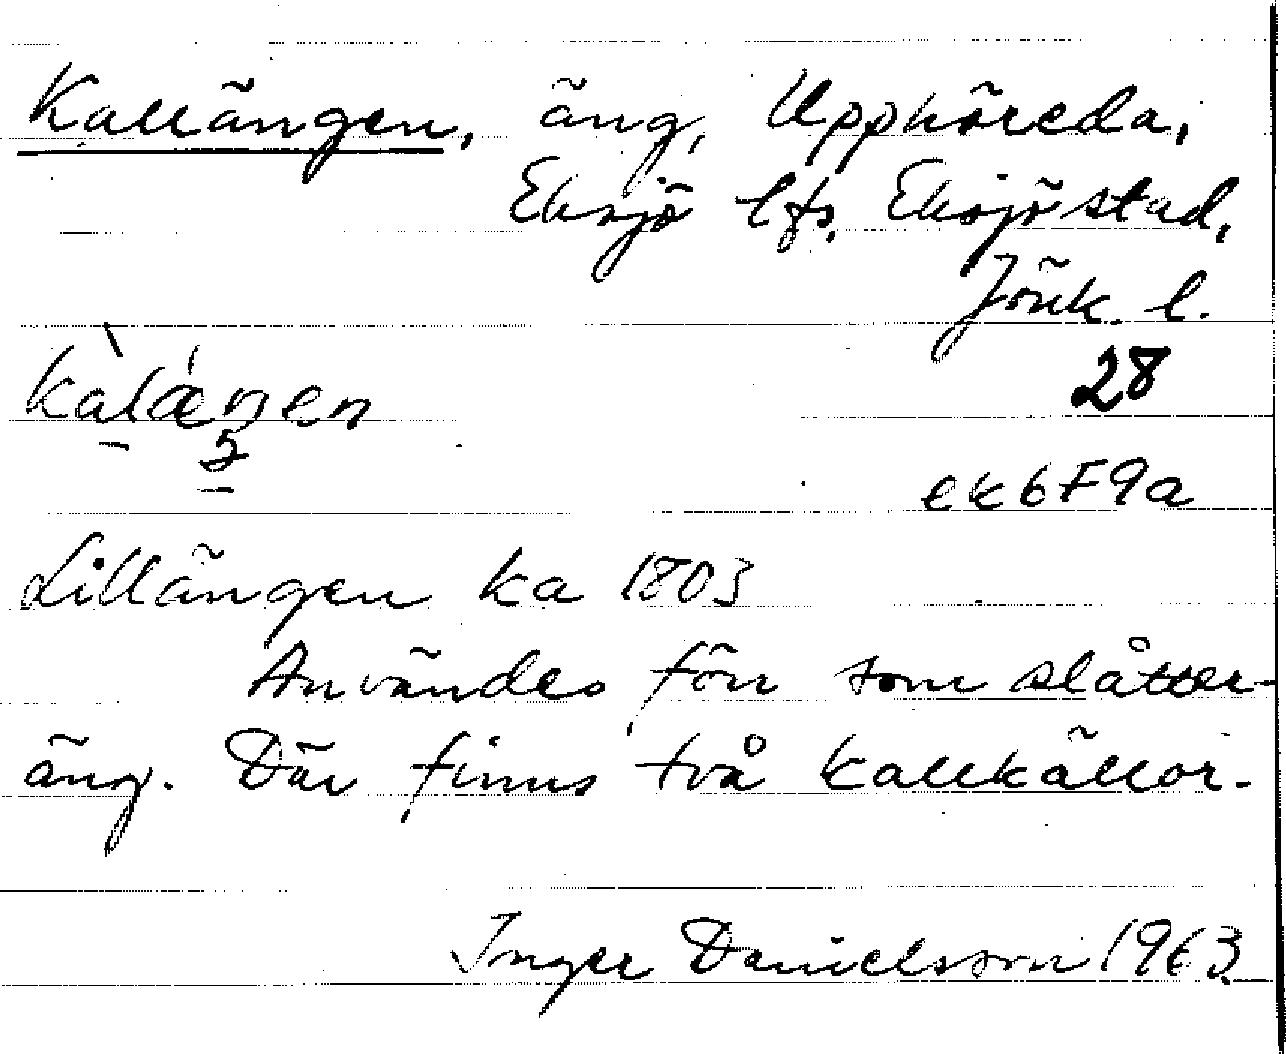 Kallängen, äng, Upphöreda,
Eksjö lfs, Eksjö stad,
Jönk. l.
28
ek6F9a
Lillängen ka 1803
Användes förr som slåtter-
äng. Där finns två kallkällor.
Inger Danielsson 1963